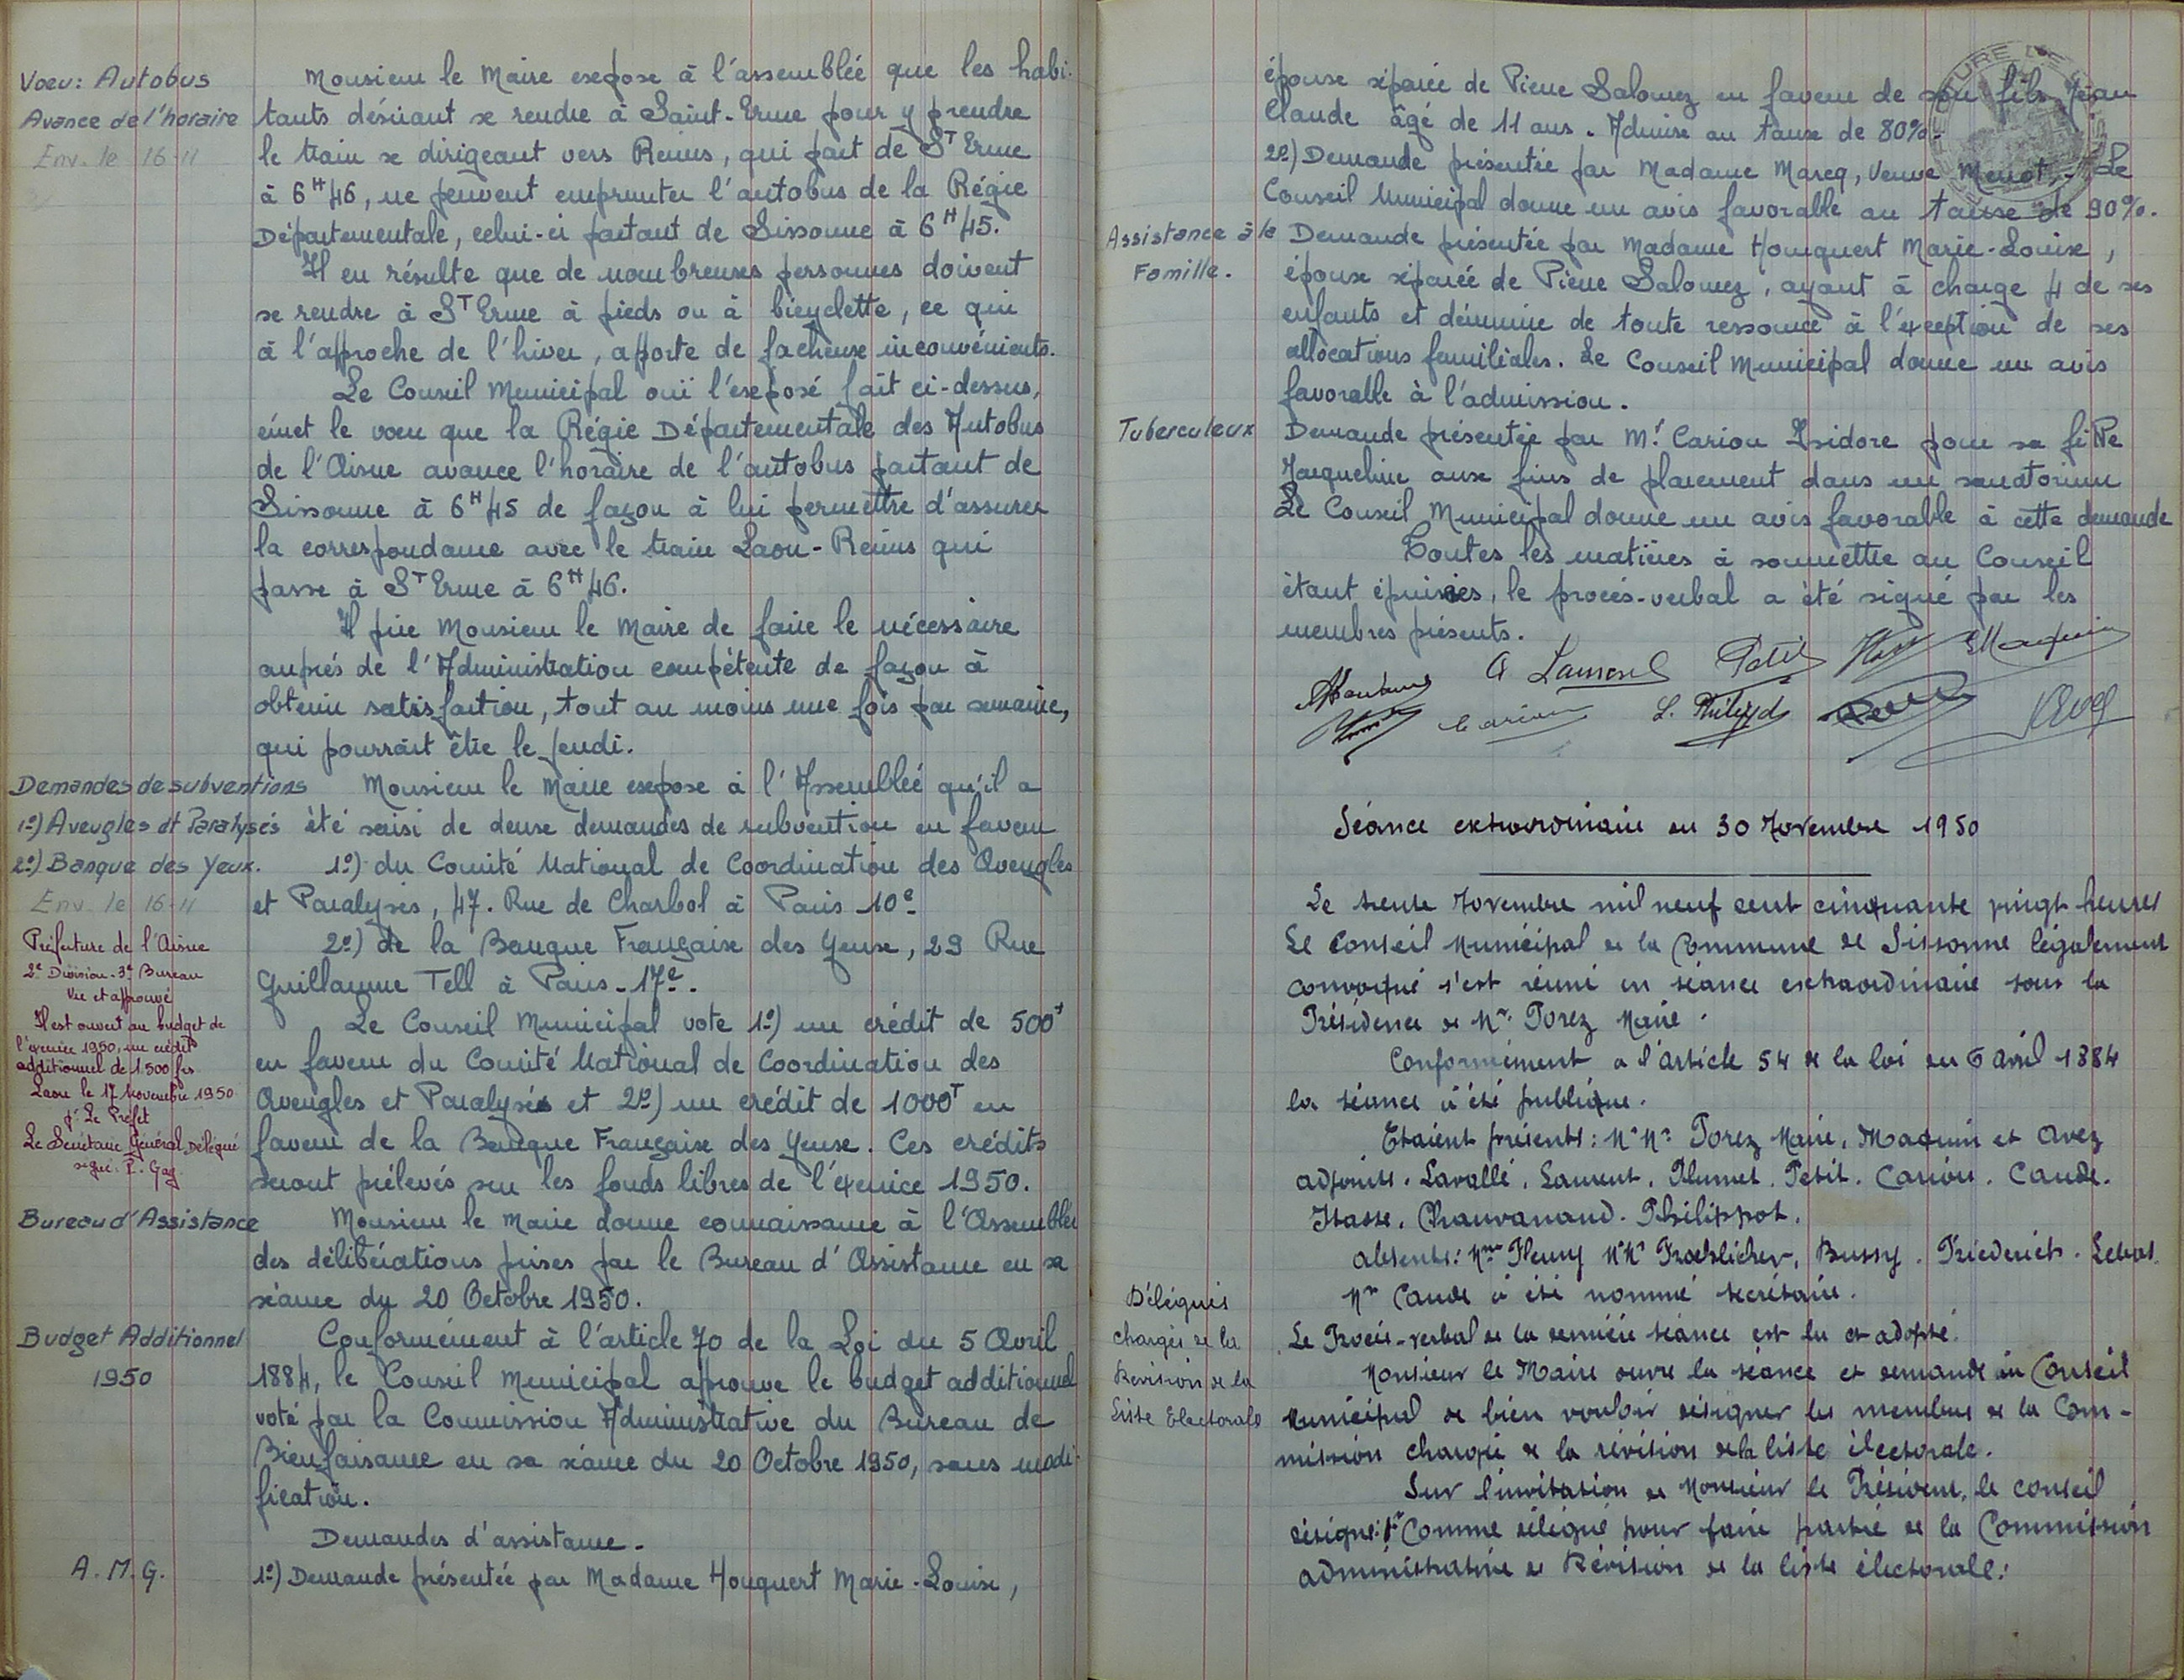 Voeu: Autobus
Avance de l'horaire
Env. le 16-11
Monsieur le Maire expose à l'assemblée que les habi-
tants désirant se rendre à Saint-Erme pour y prendre
le train se dirigeant vers Reims, qui part de ST Erme
à 6H46, ne peuvent emprunter l'autobus de la Régie
Départementale, celui-ci partant de Sissonne à 6H45.
Il en résulte que de nombreuses personnes doivent
se rendre à ST Erme à pieds ou à bicyclette, ce qui
à l'approche de l'hiver, apporte de facheuse inconvénients.
Le Conseil Municipal ouï l'exposé fait ci-dessus,
émet le voeu que la Régie Départementale des Autobus
de l'Aisne avance l'horaire de l'autobus partant de
Sissonne à 6H45 de façon à lui permettre d'assurer
la correspondance avec le train Laon-Reims qui
passe à ST Erme à 6H46.
Il prie Monsieur le Maire de faire le nécessaire
auprés de l'Administration compétente de façon à
obtenir satisfaction, tout au moins une fois par semaine,
qui pourrait être le Jeudi.
Demandes de subventions
1º) Aveugles et Paralysés
2º) Banque des Yeux.
Env. le 16-11
Monsieur le Maire expose à l'Assemblée qu'il a
été saisi de deux demandes de subvention en faveur
1º) du Comité National de Coordination des Aveugles
et Paralysés, 47. Rue de Charbol à Paris 10e
2º) de la Banque Française des Yeux, 29 Rue
Guillaume Tell à Paris-17e.
Préfecture de l'Aisne
2e Division-3e Bureau
Vu et approuvé
Il est ouvert au budget de
l'exercice 1950, un crédit
additionnel de 1.500 frs
Laon le 17 Novembre 1950
pr Le Préfet
Le Secrétaire Général Délégué
signé: P. Gag
Le Conseil Municipal vote 1º) un crédit de 500f
en faveur du Comité National de Coordination des
Aveugles et Paralysés et 2º) un crédit de 1000f en
faveur de la Banque Française des Yeux. Ces crédits
seront prélevés sur les fonds libres de l'exercice 1950.
Bureau d'Assistance
Monsieur le Maire donne connaissance à l'Assemblée
des délibérations prises par le Bureau d'Assistance en sa
séance du 20 Octobre 1950.
Budget Additionnel
1950
Conformément à l'article 70 de la Loi du 5 Avril
1884, le Conseil Municipal approuve le budget additionnel
voté par la Commission Administrative du Bureau de
Bienfaisance en sa séance du 20 Octobre 1950, sans modi-
fication.
Demandes d'assistance.
A. M. G.
1º) Demande présentée par Madame Houquert Marie-Louise,
épouse séparée de Pierre Salomez en faveur de son fils Jean
Claude âgé de 11 ans. Admise au taux de 80%.
2º) Demande présentée par Madame Marcq, Veuve Menot,. Le
Conseil Municipal donne un avis favorable au taux de 90%.
Assistance à la
Famille.
Demande présentée par Madame Houquert Marie-Louise,
épouse séparée de Pierre Salomez, ayant à charge 4 de ses
enfants et démunie de toute ressource à l'exception de ses
allocations familiales. Le Conseil Municipal donne un avis
favorable à l'admission.
Tuberculeux
Demande présentée par Mr Cariou Isidore pour sa fille
Jacqueline aux fins de placement dans un sanatorium
Le Conseil Municipal donne un avis favorable à cette demande
Toutes les matières à soumettre au Conseil
étant épuisées, le procés-verbal a été signé par les
membres présents.
Petit
Cariou
Séance extraordinaire du 30 Novembre 1950
Le trente Novembre mil neuf cent cinquante vingt heures
Le Conseil Municipal de la Commune de Sissonne légalement
convoqué s'est réuni en séance extraordinaire sous la
Présidence de Mr. Porez Maire.
Conformément a l'article 54 de la loi du 6 avril 1884
la séance à été publique.
Etaient présents: Mrs Porez Maire, Maquin et Avez
adjoints, Lavallé, Laurent, Plumet, Petit, Cariou, Caude.
Hasse, Chauvanaud. Philippot.
absents: Mme Fleury Mrs Froehlicher, Bussy. Friederich. Lebas.
Mr Caude à été nommé secrétaire.
Le Procés-verbal de la dernière séance est lu et adopté.
Délégués
chargés de la
Revision de la
Liste Electorale
Monsieur le Maire ouvre la séance et demande au Conseil
Municipal de bien vouloir désigner les membres de la Com-
mission chargée de la révision de la liste électorale.
Sur l'invitation de Monsieur le Président, le conseil
désigne: 1º Comme délégué pour faire partie de la Commission
administrative de Révision de la liste électorale: